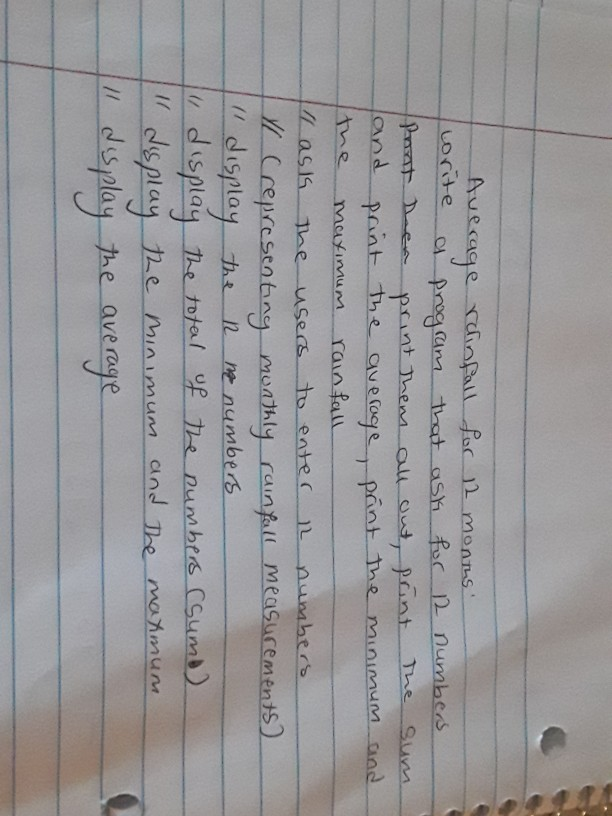 Average rainfall for 12 months'
write a program that ask for 12 numbers
print them all out, print the sum
and print the average, print the minimum and
the maximum rainfall
// ask the users to enter 12 numbers
// (representing monthly rainfall measurements)
// display the 12 numbers
// display the total of the numbers (sum)
// display the minimum and the maximum
// display the average